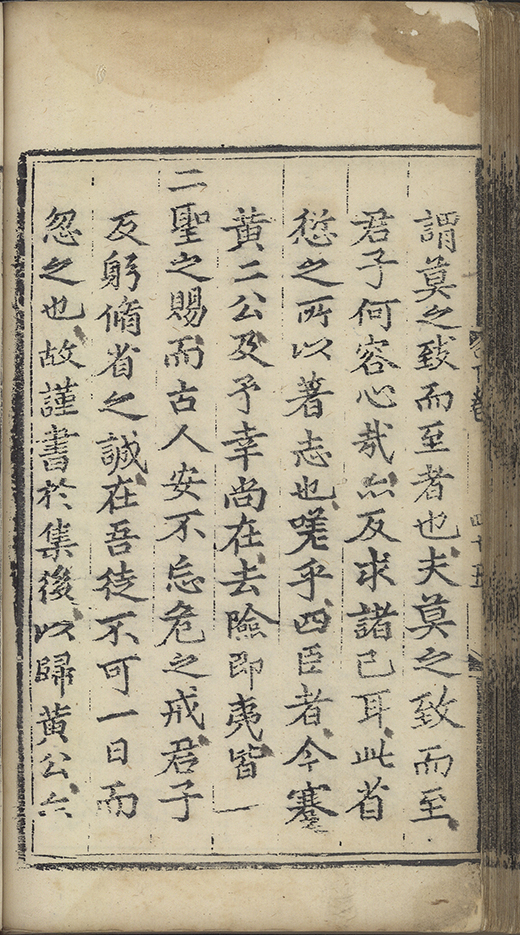 謂莫之致而至者也夫莫之致而至
君子何容心哉亦反求諸己耳此省
愆之所以著志也嗟乎四臣者今蹇
黃二公及予幸尚在去險即夷皆
二聖之賜而古人安不忘危之戒君子
反躬脩省之誠在吾徒不可一日而
忽之也故謹書於集後以歸黃公